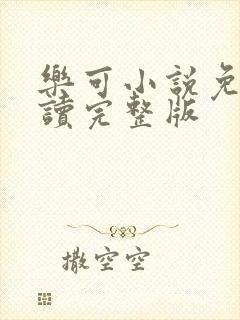 樂可小說免
讀完整版
撒空空